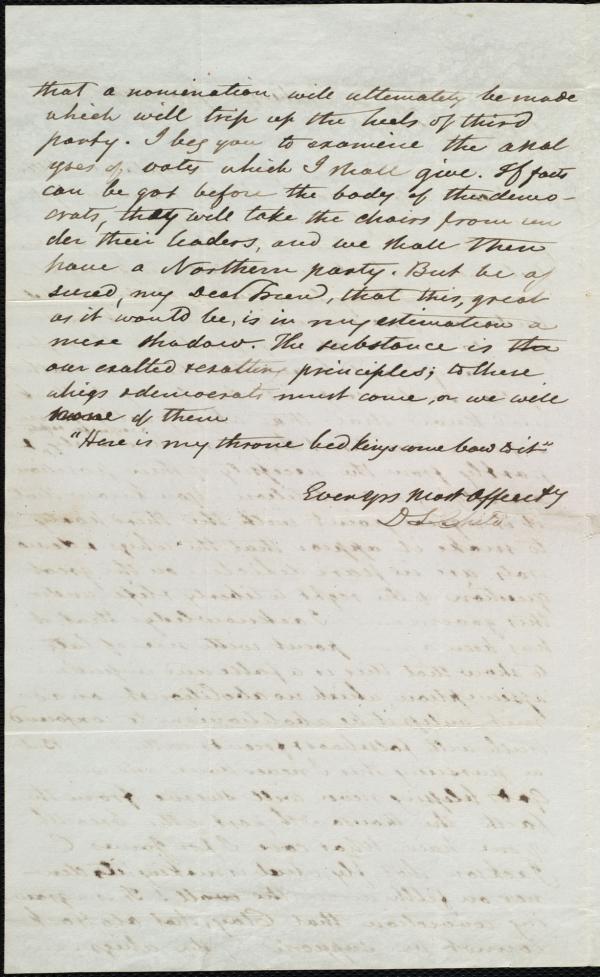 that a nomination will ultimately be made
which will trip up the heels of third
party. I beg you to examine the anal
yses of votes which I shall give. If facts
can be got before the body of the demo-
crats, they will take the chairs from un
der their leaders, and we shall then
have a Northern party. But be as
sured, my Dear Friend, that this, great
as it would be, is in my estimation a
mere shadow. The substance is the
our exalted & exalting principles; to these
whigs & democrats must come, or we will
none of them
"Here is my throne bid kings come bow to it"
Ever Yrs Most Affectly
D L Child